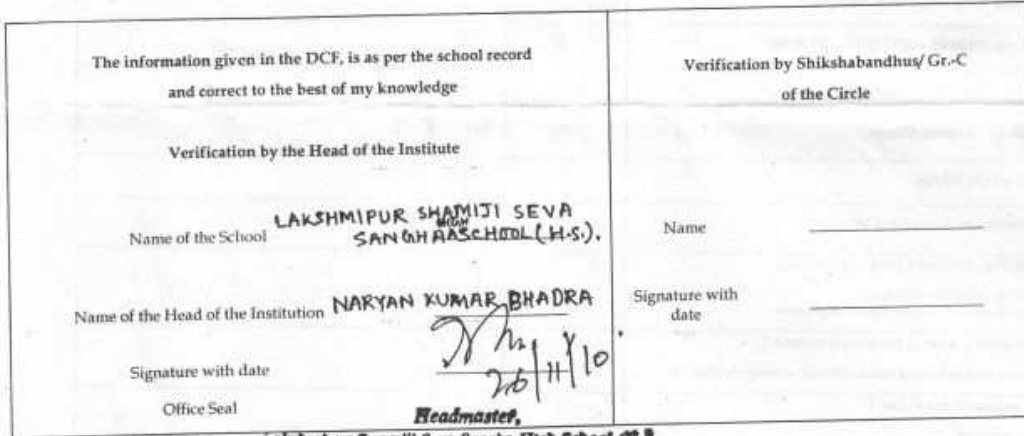 The information given in the DCF, is as per the school record
and correct to the best of my knowledge
Verification by the Head of the Institute
Name of the School LAKSHMIPUR SHAMIJI SEVA
HIGH
SANGHA SCHOOL (H.S.).
Name of the Head of the Institution NARYAN KUMAR BHADRA
Signature with date
26/11/10
Office Seal
Headmaster,
High School
Verification by Shikshabandhus/ Gr.-C
of the Circle
Name
Signature with
date